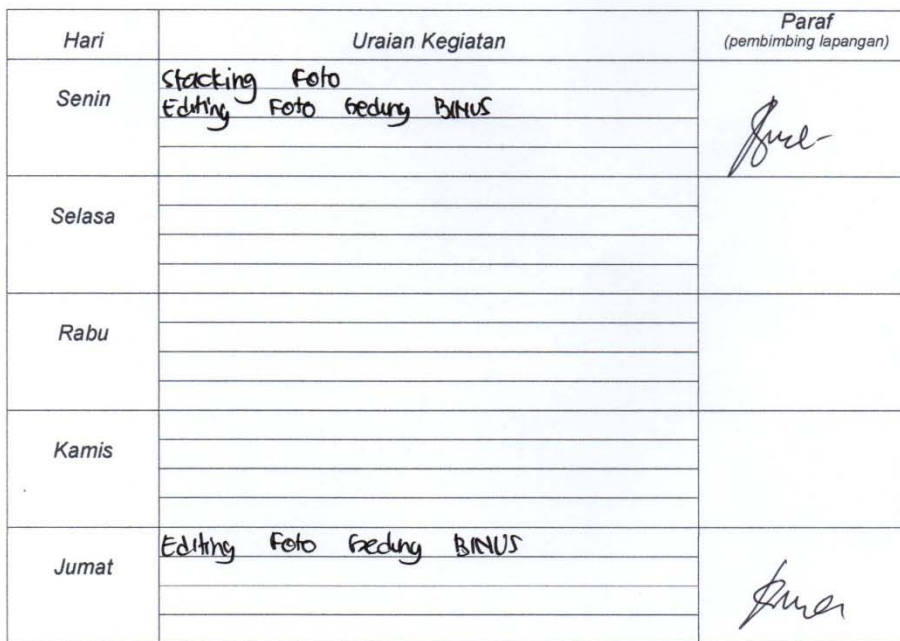 Hari Uraian Kegiatan Paraf
(pembimbing lapangan)
Senin
Stacking Foto
Editing Foto Gedung BINUS
Selasa
Rabu
Kamis
Jumat
Editing Foto Gedung BINUS